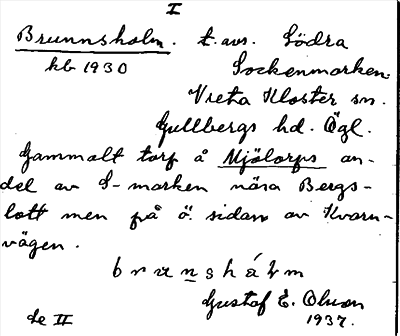 I
Brunnsholm. t. avs. Södra
kb 1930 Sockenmarken.
Vreta Kloster sn.
Gullbergs hd. Ögl.
Gammalt torp å Mjölorps an-
del av S-marken nära Bergs-
lott men på ö. sidan av Kvarn-
vägen.
brunshåm
Gustaf E. Olsson
se II 1937.